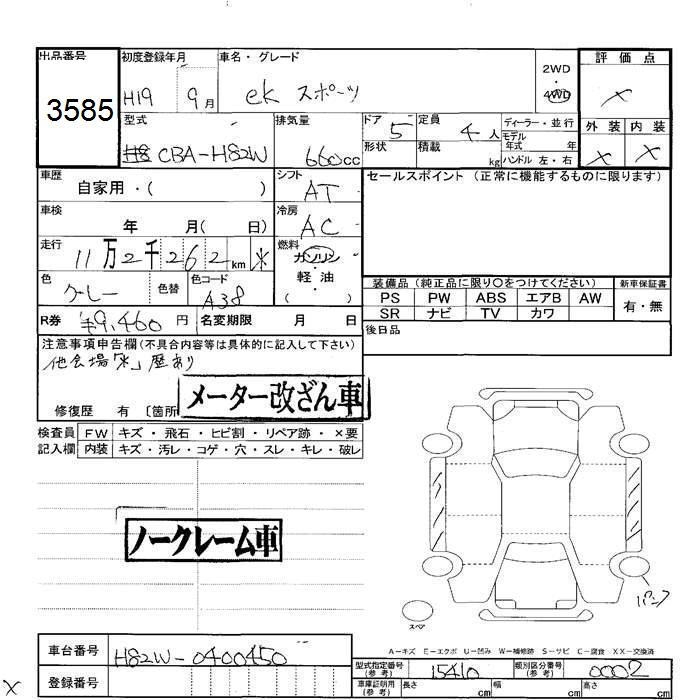 出品番号 初度登録年月 車名・グレード 2WD 評価点
3585 H19 9月 ek スポーツ 4WD ×
型式 排気量 ドア 定員 ディーラー・並行 外装 内装
CBA-H82W 660cc 5 4人 モデル年式 年 × ×
形状 積載 kg ハンドル 左・右
車歴 自家用・( ) シフト AT セールスポイント (正常に機能するものに限ります)
車検 年 月( 日) 冷房 AC
走行 11万2千262km * 燃料 ガソリン
軽油
( )
色 グレー 色替 色コード A38
装備品 (純正品に限り○をつけてください) 新車保証書
PS PW ABS エアB AW 有・無
SR ナビ TV カワ
R券 ¥9,460円 名変期限 月 日 後日品
注意事項申告欄(不具合内容等は具体的に記入して下さい)
他会場「*」歴あり
メーター改ざん車
修復歴 有 〔箇所
検査員 FW キズ・飛石・ヒビ割・リペア跡・×要
記入欄 内装 キズ・汚レ・コゲ・穴・スレ・キレ・破レ
ノークレーム車
パンク
スペア
A-キズ E-エクボ U-凹み W-補修跡 S-サビ C-腐食 XX-交換済
車台番号 H82W-0400450
型式指定番号(参考) 15410 類別区分番号(参考) 0002
登録番号
車庫証明用(参考) 長さ cm 幅 cm 高さ cm
×